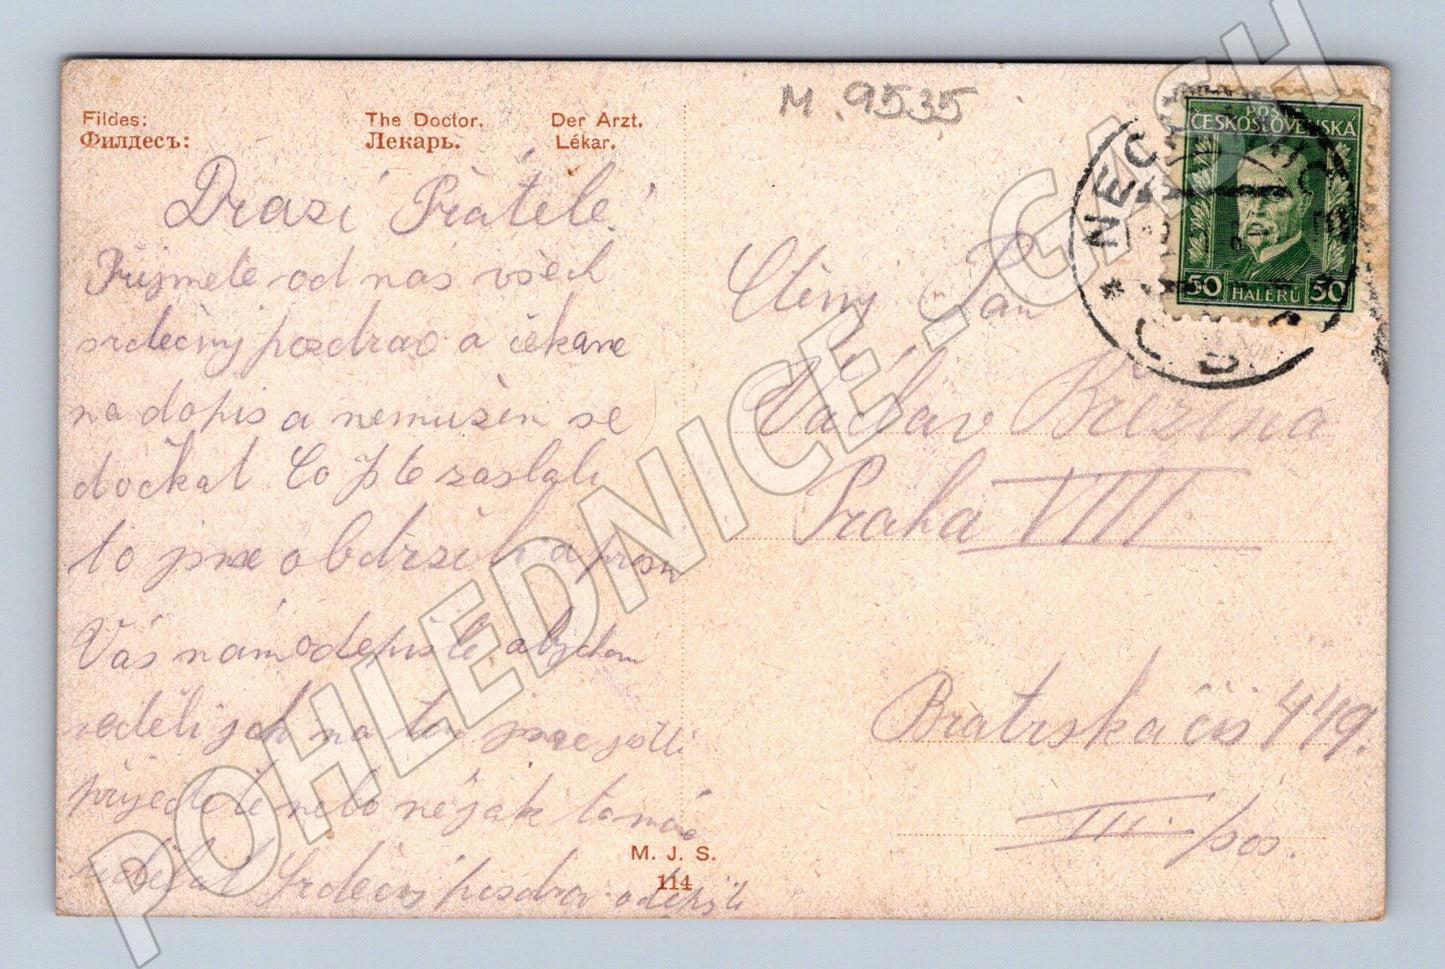 Fildes: The Doctor. Der Arzt.
Филдесъ: Лекарь. Lékar.
M 9535
POŠTA
ČESKOSLOVENSKÁ
50 HALÉŘŮ 50
NEC
Drazí Přátelé!
Přijmete od nas všech
srdečný pozdrav a čekame
na dopis a nemužem se
dočkat Co jste zaslali
to jsme obdrželi a prosim
Vás nám odepište abychom
vedeli jak na tom jsme jestli
přijedete nebo nějak to
Srdečný pozdrav odepište
Ctěný Pan
Václav Březina
Praha VIII
Bratrska čis 449.
III. pos.
M. J. S.
114
POHLEDNICE - GASH